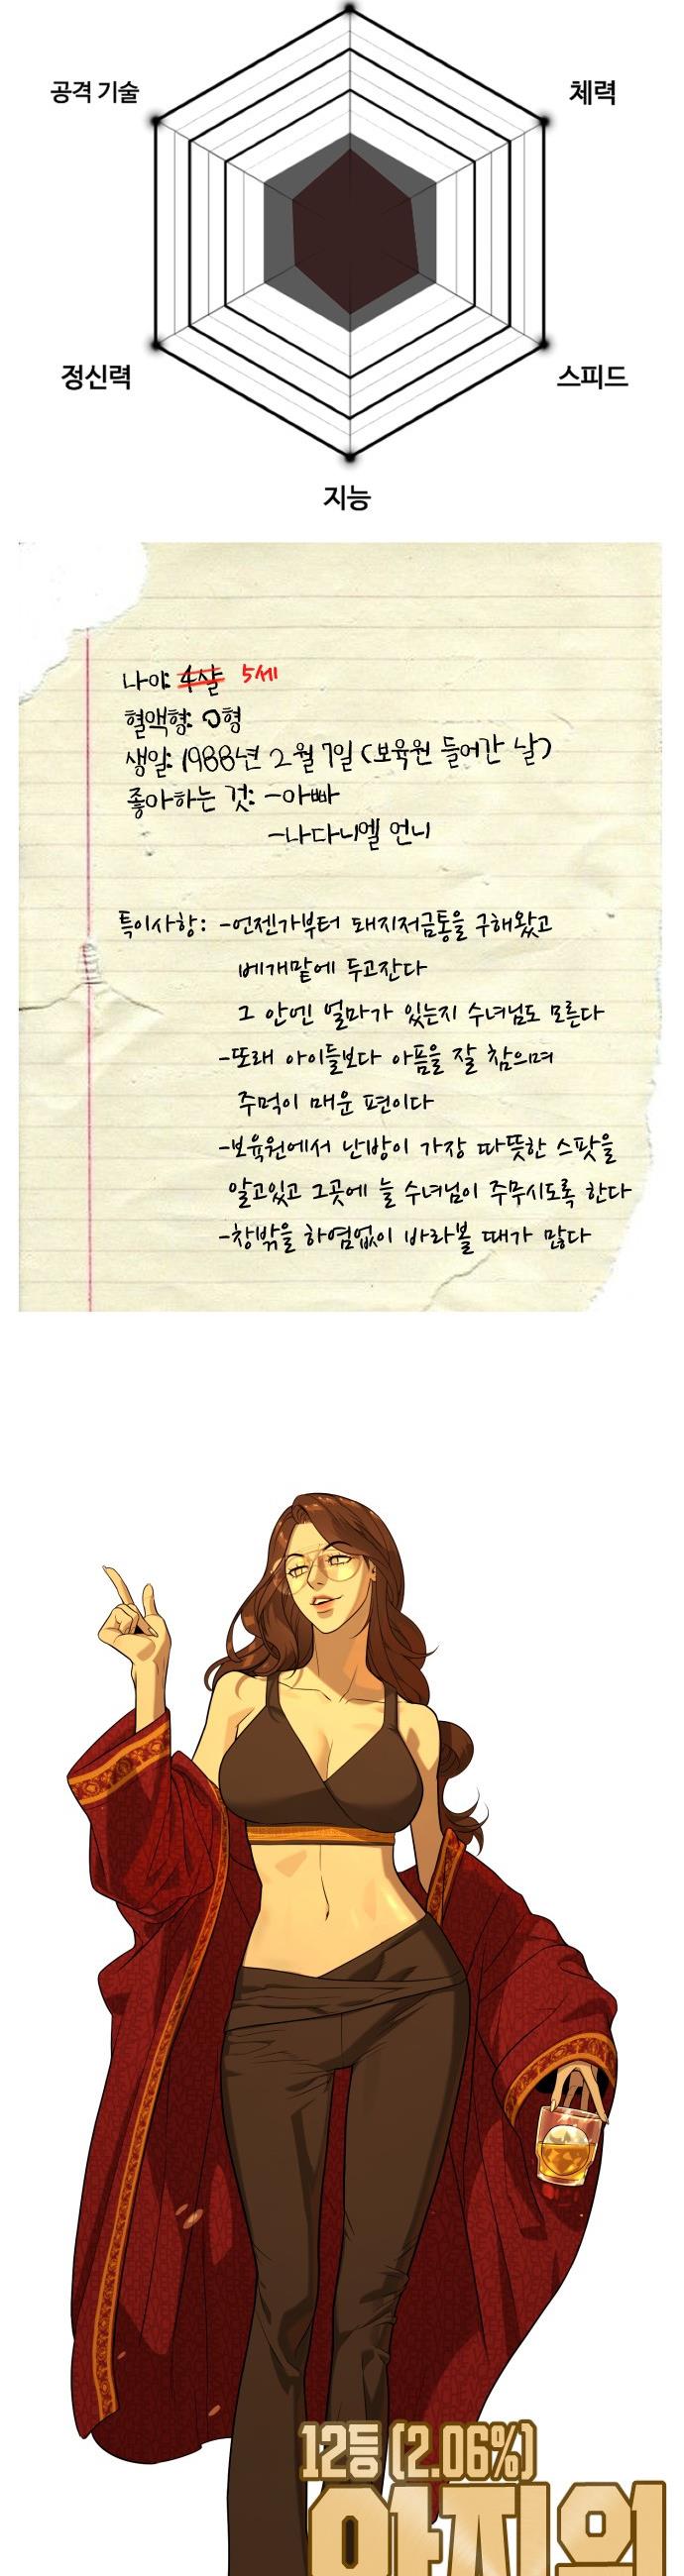 공격 기술
체력
정신력
스피드
지능
나이: 4살 5세
혈액형: O형
생일: 1988년 2월 7일 (보육원 들어간 날)
좋아하는 것: -아빠
-나다니엘 언니
특이사항: -언젠가부터 돼지저금통을 구해왔고
베개맡에 두고잔다
그 안엔 얼마가 있는지 수녀님도 모른다
-또래 아이들보다 아픔을 잘 참으며
주먹이 매운 편이다
-보육원에서 난방이 가장 따뜻한 스팟을
알고있고 그곳에 늘 수녀님이 주무시도록 한다
-창밖을 하염없이 바라볼 때가 많다
12등 (2.06%)